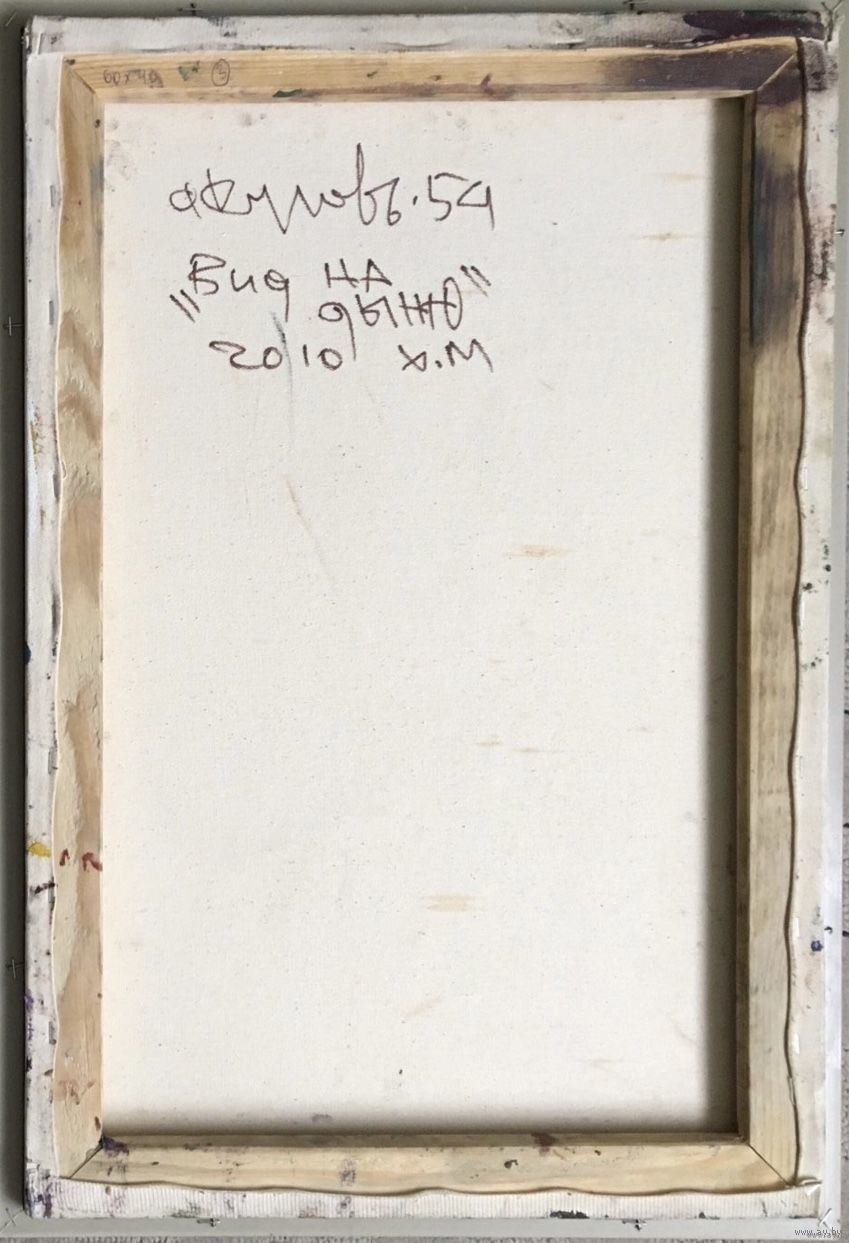 60x49 ③
Акулов В. 54
"Вид на
дыню"
2010 х.м
www.ay.by